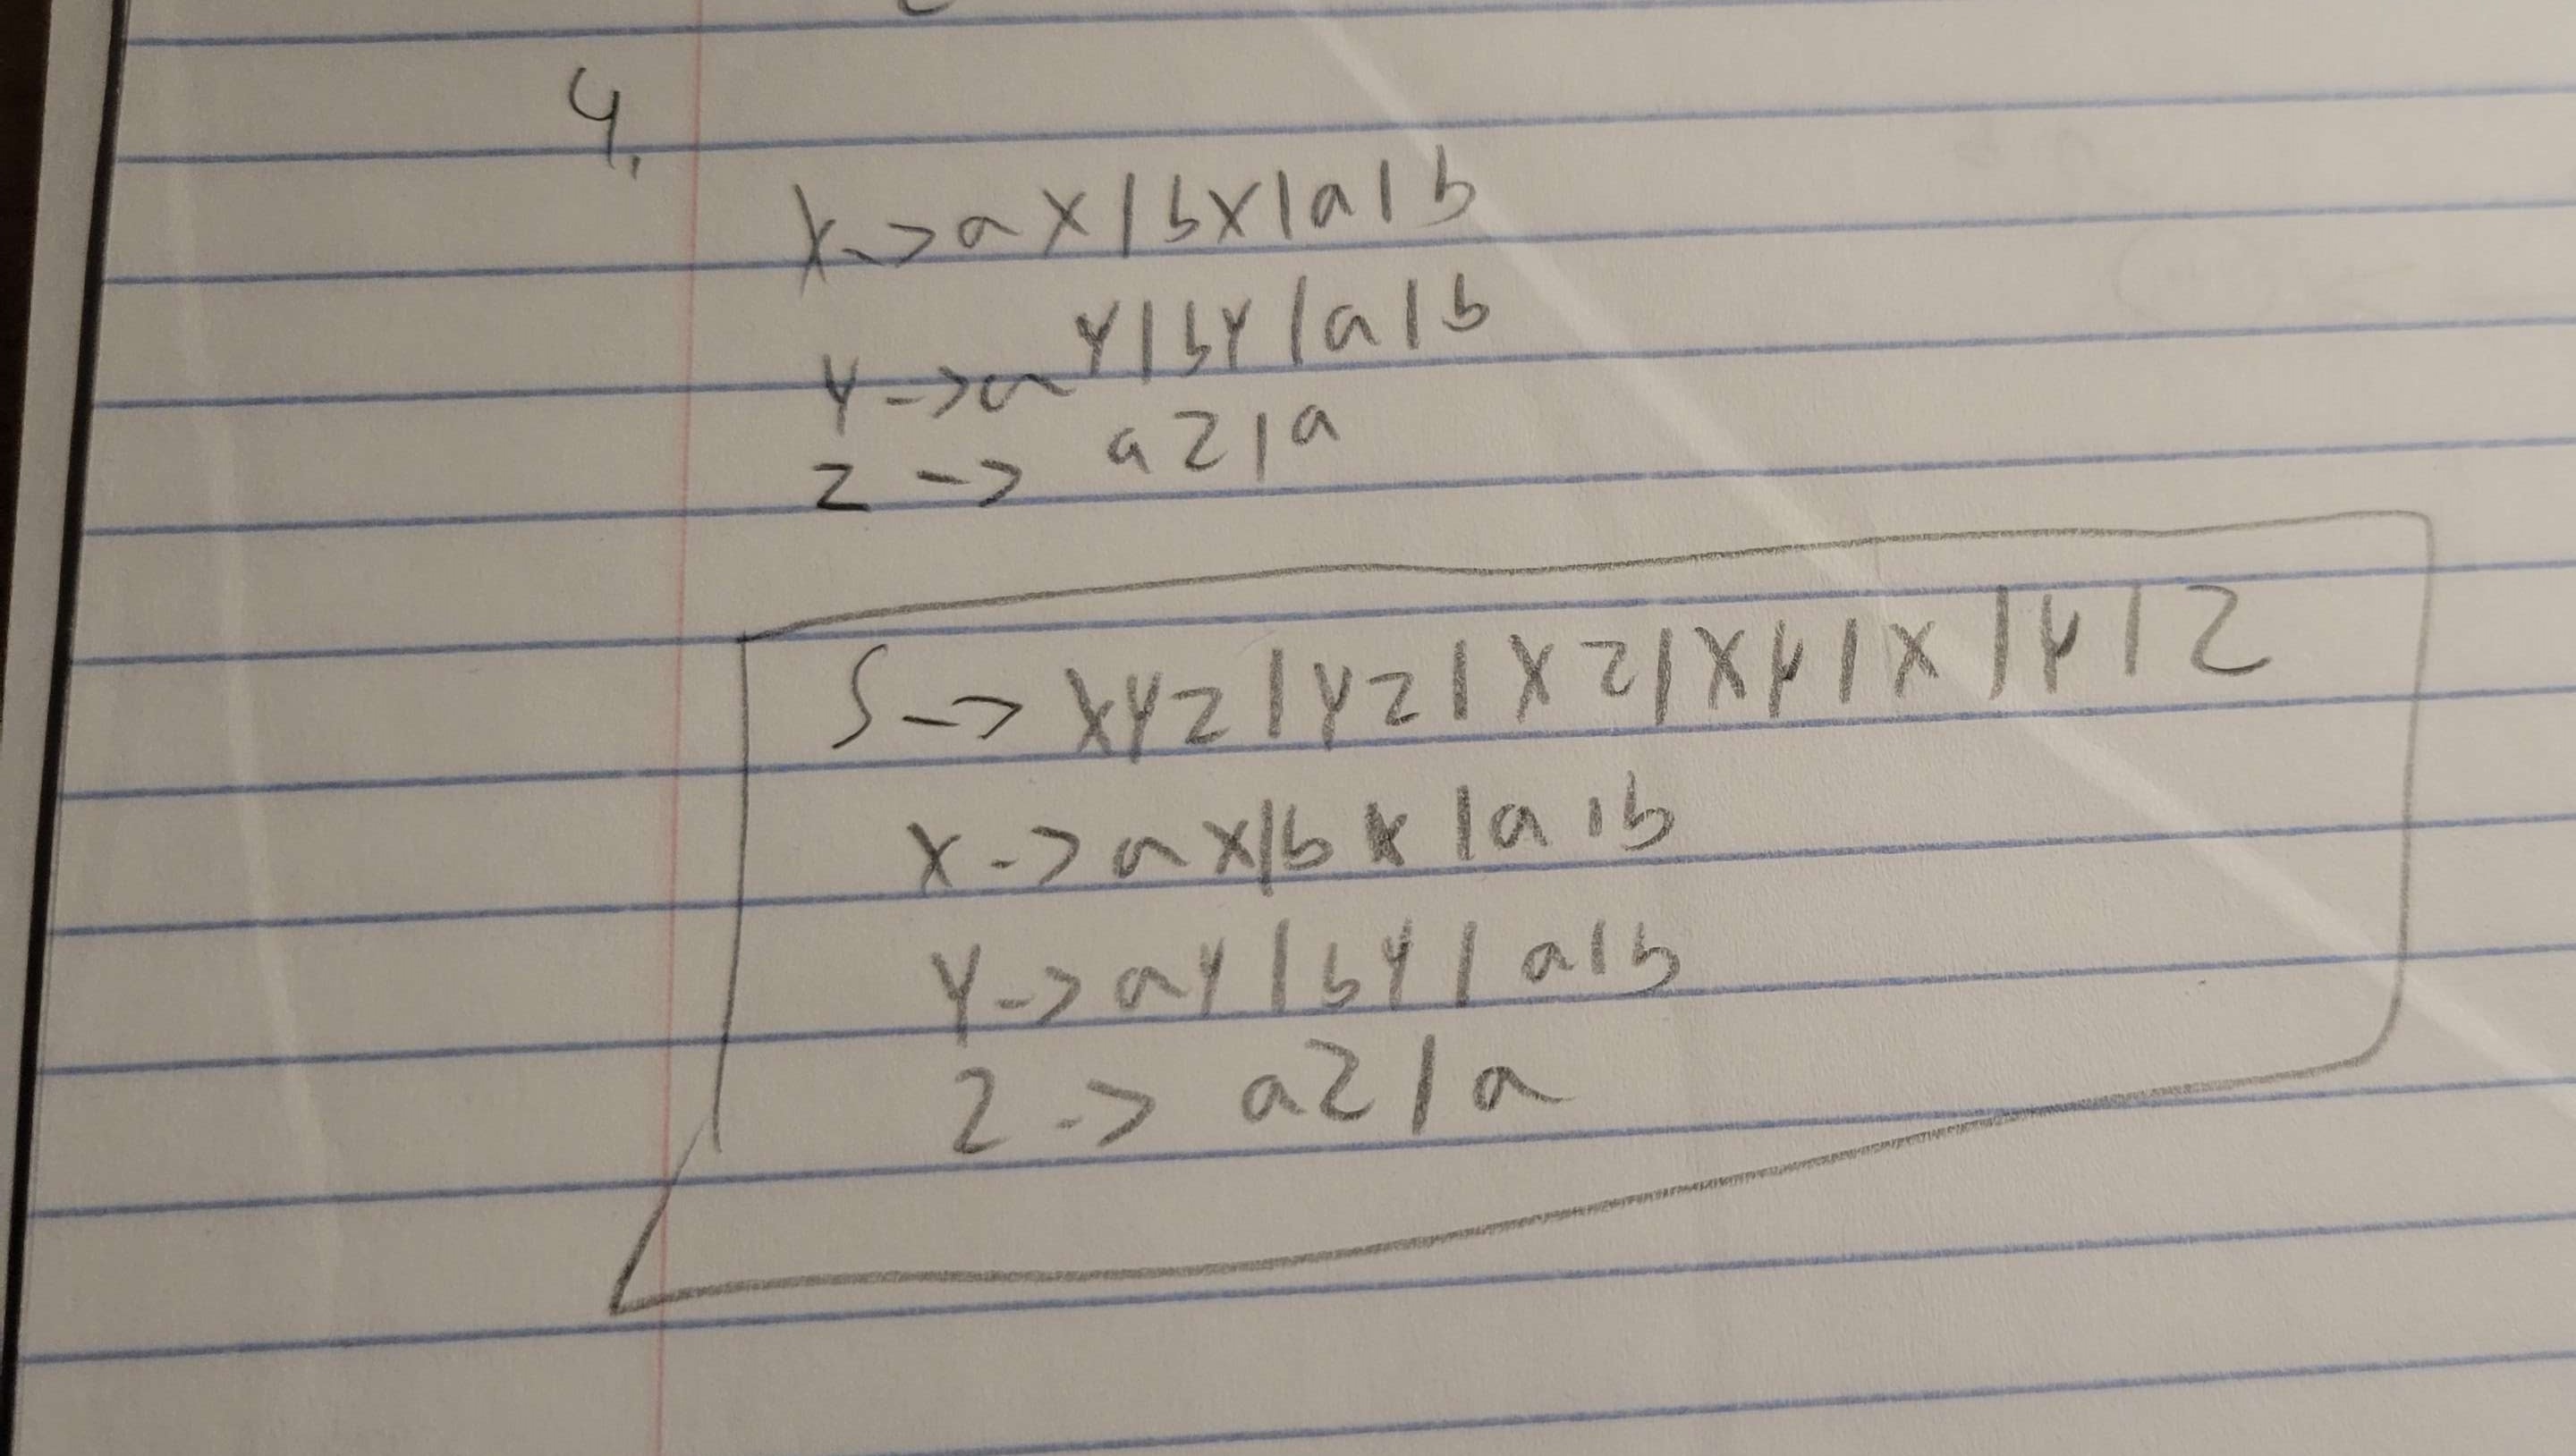 4.
X -> aX | bX | a | b
Y -> aY | bY | a | b
Z -> aZ | a
S -> XYZ | YZ | XZ | XY | X | Y | Z
X -> aX | bX | a | b
Y -> aY | bY | a | b
Z -> aZ | a